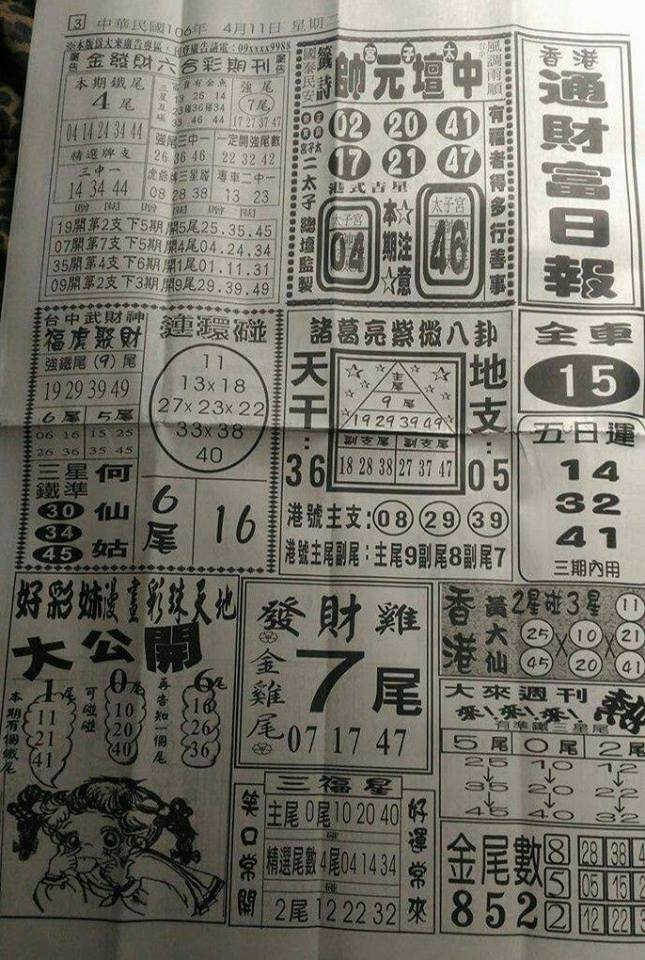 3 中華民國106年 4月11日 星期二
※本版爲大來廣告專區‧刊登廣告請電:09xxxx9988
金發財六合彩期刊
本期鐵尾
4尾
04 14 24 34 44
強尾
7尾
17 27 37 47
精選牌支
三中一
14 34 44
強尾三中一
26 36 46
一定開強尾數
22 32 42
虎爺 三星碰
08 28 38
專車二中一
13 23
19開第2支下5期開5尾25.35.45
07開第7支下5期開4尾04.24.34
35開第4支下6期開1尾01.11.31
09開第2支下3期開9尾29.39.49
籤詩
國泰民安
帥元壇中
宮子太
風調雨順
02 20 41
17 21 47
港式吉星
二太子 踏壇監製
有福者得多行善事
太子宮
04
本期注意
太子宮
46
香港
通財富日報
台中武財神
福虎發財
強鐵尾(9)尾
19 29 39 49
6尾 5尾
06 16 15 25
26 36 35 45
三星鐵準
30
34
45
何仙姑
連環碰
11
13x18
27x23x22
33x38
40
6尾
16
諸葛亮紫微八卦
天干:36
地支:05
主尾
9尾
19 29 39 49
副支尾 副支尾
18 28 38 27 37 47
港號主支:08 29 39
港號主尾副尾:主尾9副尾8副尾7
全車
15
五日運
14
32
41
三期內用
好彩妹漫畫彩珠天地
大公開
本期有個鐵尾
1尾
11
21
41
可碰碰
0尾
10
20
40
再告知一個尾
6尾
16
26
36
發財雞
金雞尾
7尾
07 17 47
三福星
笑口常開
主尾0尾10 20 40
碰
精選尾數4尾04 14 34
碰
2尾12 22 32
好運常來
香港
黃大仙
2星碰3星
11
25 10 21
45 20 41
大來週刊
熱
有準鐵三星尾
5尾 0尾 2尾
25 10 12
35 20 22
45 40 32
金尾數
852
8 28 38
5 05 15
2 12 22